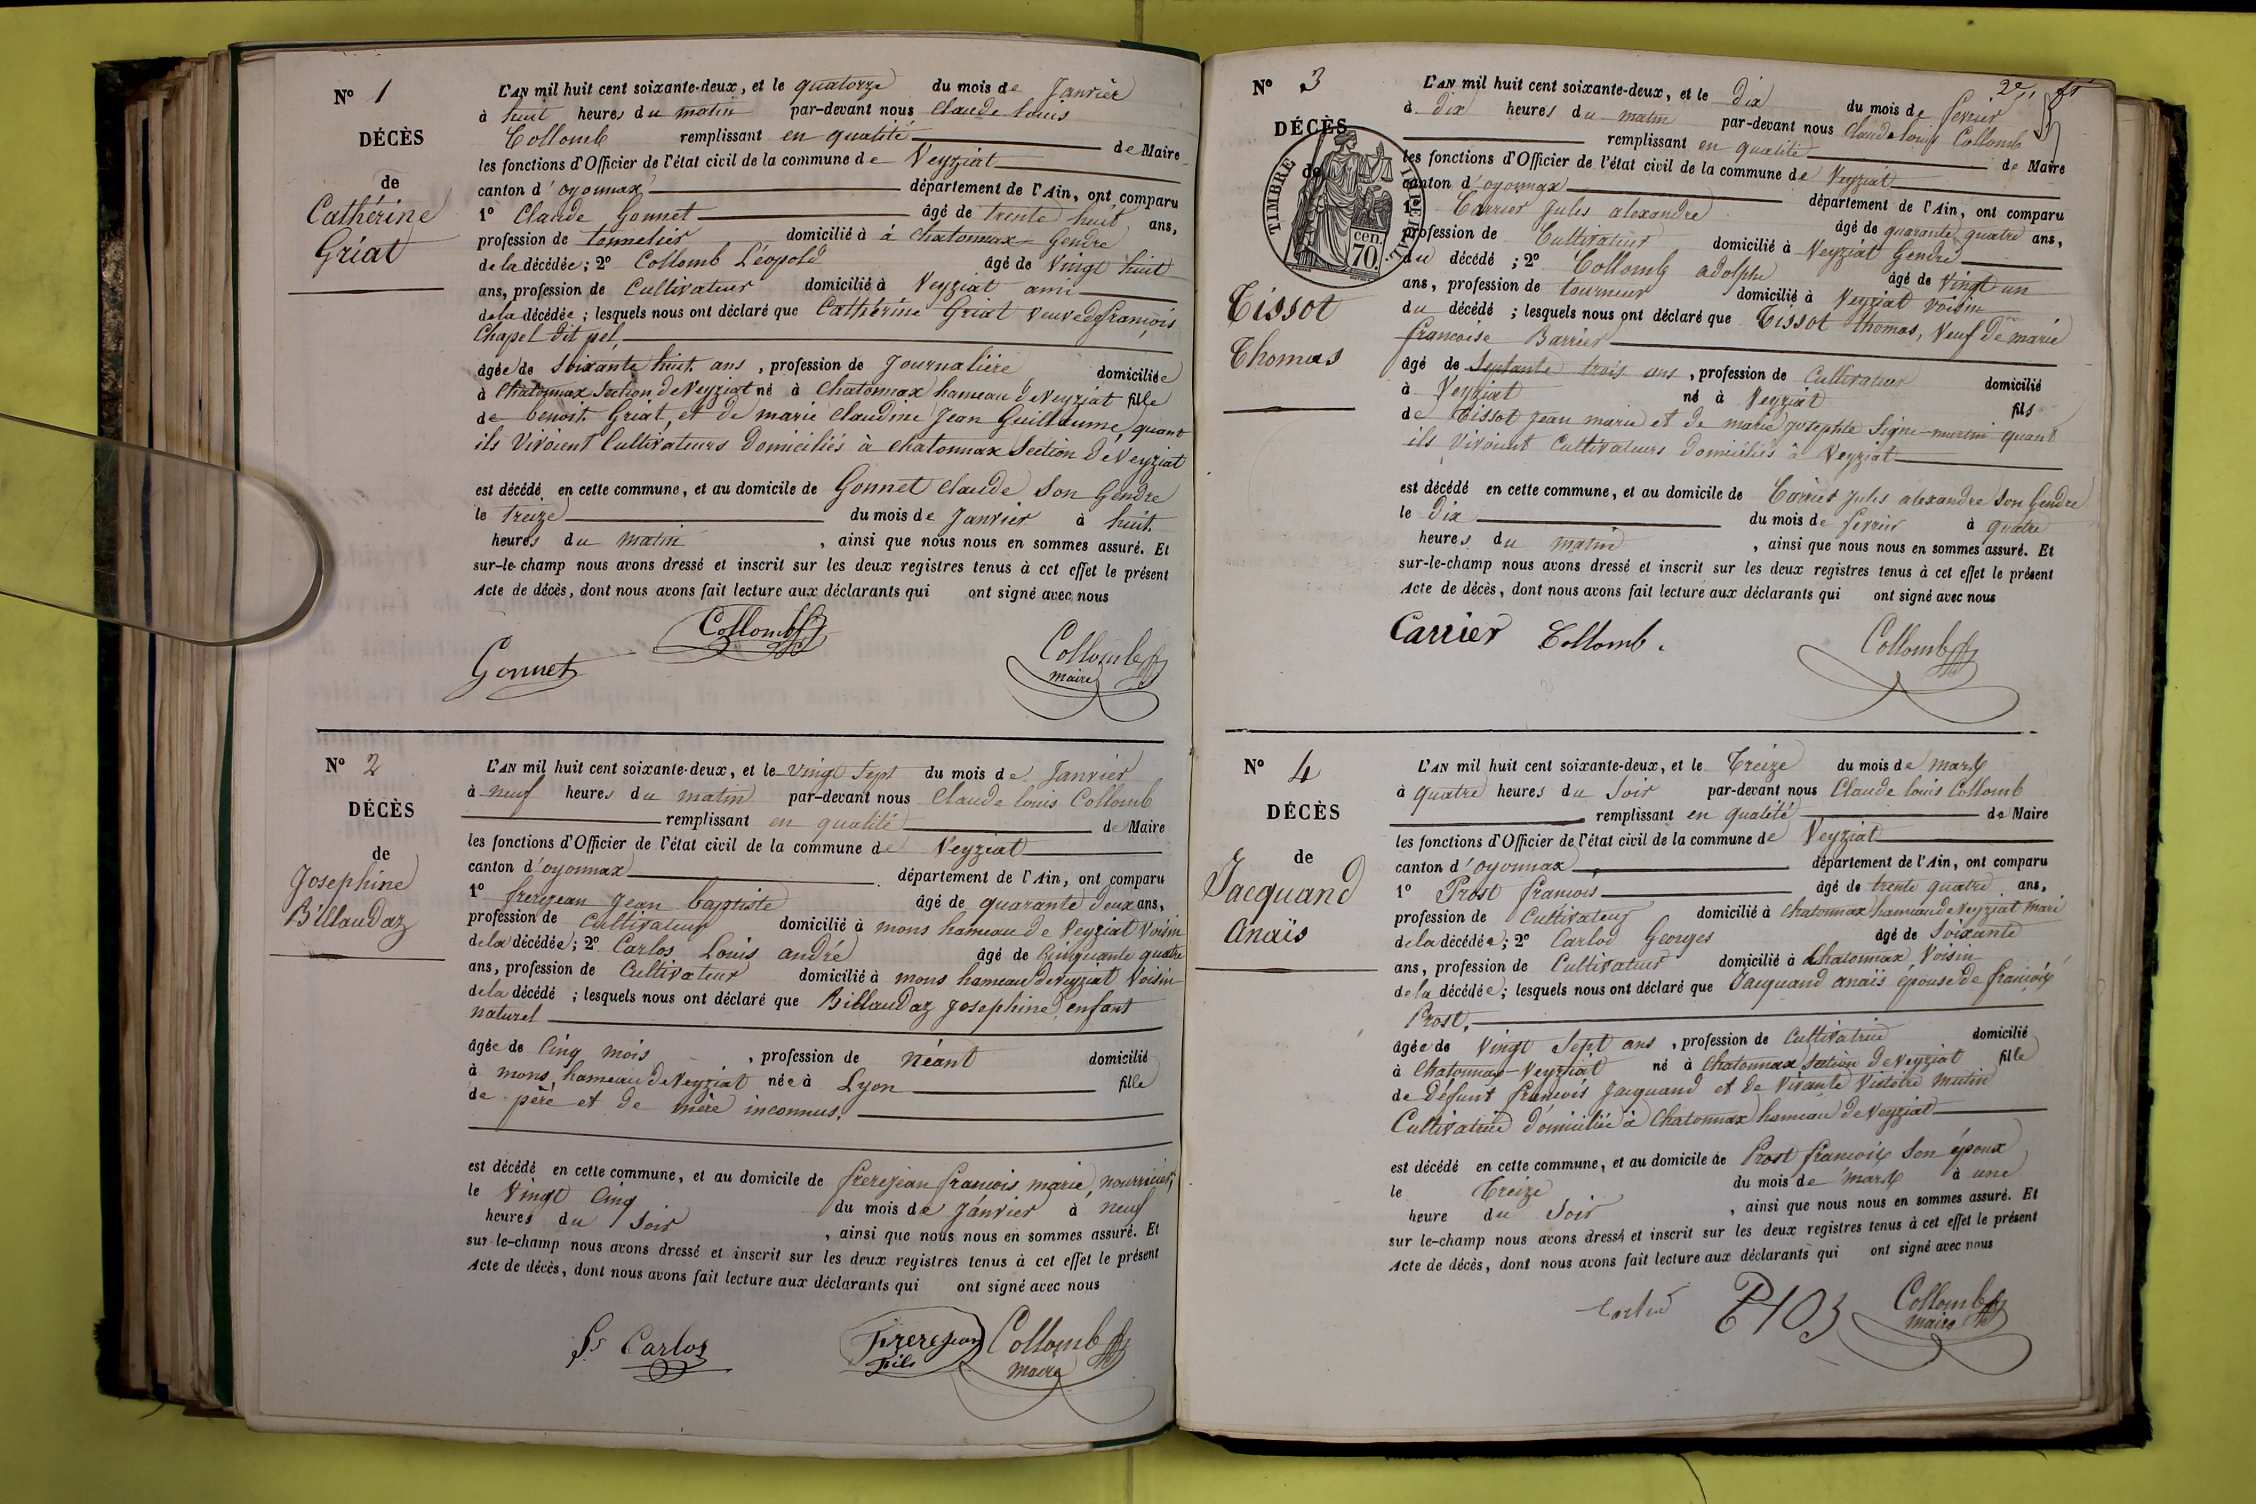 N° 1
DÉCÈS
de
Cathérine
Griat
L'AN mil huit cent soixante-deux, et le quatorze du mois de Janvier
à huit heures du matin par-devant nous Claude Louis
Collomb remplissant en qualité de Maire
les fonctions d'Officier de l'état civil de la commune de Veyziat
canton d'oyonnax département de l'Ain, ont comparu
1° Claude Gonnet âgé de trente huit ans,
profession de tonnelier domicilié à á chatonnax Gendre
de la décédée; 2° Collomb Léopold âgé de vingt huit
ans, profession de Cultivateur domicilié à Veyziat ami
de la décédée; lesquels nous ont déclaré que Cathérine Griat veuve de françois
Chapel dit pel,
âgée de soixante huit ans, profession de Journalière domiciliée
à Chatonnax Section de Veyziat né à Chatonnax hameau de Veyziat fille
de benoit Griat, et de marie Claudine Jean Guillaume, quant
ils Vivoient Cultivateurs Domiciliés à chatonnax Section de Veyziat
est décédé en cette commune, et au domicile de Gonnet Claude Son Gendre
le treize du mois de Janvier à huit
heures du matin, ainsi que nous nous en sommes assuré. Et
sur-le-champ nous avons dressé et inscrit sur les deux registres tenus à cet effet le présent
Acte de décès, dont nous avons fait lecture aux déclarants qui ont signé avec nous
Gonnet Collomb Collomb
maire
N° 2
DÉCÈS
de
Josephine
Billaudaz
L'AN mil huit cent soixante-deux, et le vingt Sept du mois de Janvier
à neuf heures du matin par-devant nous Claude louis Collomb
remplissant en qualité de Maire
les fonctions d'Officier de l'état civil de la commune de Veyziat
canton d'oyonnax département de l'Ain, ont comparu
1° frerejean Jean baptiste âgé de quarante deux ans,
profession de Cultivateur domicilié à mons hameau de Veyziat Voisin
de la décédée; 2° Carlos Louis andré âgé de Cinquante quatre
ans, profession de Cultivateur domicilié à mons hameau de Veyziat Voisin
de la décédé; lesquels nous ont déclaré que Billaudaz Josephine, enfant
naturel
âgée de Cinq mois, profession de Néant domicilié
à mons, hameau de Veyziat née à Lyon fille
de père et de mère inconnus.
est décédé en cette commune, et au domicile de frerejean francois marie, nourricier,
le Vingt Cinq du mois de Jánvier à neuf
heures du Soir, ainsi que nous nous en sommes assuré. Et
sur-le-champ nous avons dressé et inscrit sur les deux registres tenus à cet effet le présent
Acte de décès, dont nous avons fait lecture aux déclarants qui ont signé avec nous
Ls Carlos Frerejean Collomb
fils maire
N° 3
DÉCÈS
de
TIMBRE IMPERIAL
70 cen.
Tissot
Thomas
L'AN mil huit cent soixante-deux, et le Dix du mois de fevrier
à dix heures du matin par-devant nous Claude louis Collomb
remplissant en qualité de Maire
les fonctions d'Officier de l'état civil de la commune de Veyziat
canton d'oyonnax département de l'Ain, ont comparu
1° Carrier Jules alexandre âgé de quarante quatre ans,
profession de Cultivateur domicilié à Veyziat Gendre
du décédé; 2° Collomb adolphe âgé de vingt un
ans, profession de tourneur domicilié à Veyziat voisin
du décédé; lesquels nous ont déclaré que Tissot thomas, Veuf de marie
francoise Barrier
âgé de Septante trois ans, profession de Cultivateur domicilié
à Veyziat né à Veyziat fils
de Tissot Jean marie et de marie Josephte Signe-morin quant
ils Vivoient Cultivateurs Domiciliés à Veyziat
est décédé en cette commune, et au domicile de Carrier Jules alexandre Son Gendre
le Dix du mois de fevrier à quatre
heures du matin, ainsi que nous nous en sommes assuré. Et
sur-le-champ nous avons dressé et inscrit sur les deux registres tenus à cet effet le présent
Acte de décès, dont nous avons fait lecture aux déclarants qui ont signé avec nous
Carrier Collomb. Collomb
N° 4
DÉCÈS
de
Jacquand
Anaïs
L'AN mil huit cent soixante-deux, et le Treize du mois de mars
à quatre heures du Soir par-devant nous Claude louis Collomb
remplissant en qualité de Maire
les fonctions d'Officier de l'état civil de la commune de Veyziat
canton d'oyonnax département de l'Ain, ont comparu
1° Prost francois âgé de trente quatre ans,
profession de Cultivateur domicilié à Chatonnax hameau de Veyziat mari
de la décédée; 2° Carlod Georges âgé de Soixante
ans, profession de Cultivateur domicilié à Chatonnax Voisin
de la décédée; lesquels nous ont déclaré que Jacquand anaïs épouse de francois
Prost,
âgée de Vingt Sept ans, profession de Cultivatrice domicilié
à Chatonnax-Veyziat né à Chatonnax Section de Veyziat fille
de Défunt francois Jacquand et de Vivante Victoire mutin
Cultivatrice Domiciliée à Chatonnax hameau de Veyziat
est décédé en cette commune, et au domicile de Prost francois Son époux
le Treize du mois de mars à une
heure du Soir, ainsi que nous nous en sommes assuré. Et
sur le-champ nous avons dressé et inscrit sur les deux registres tenus à cet effet le présent
Acte de décès, dont nous avons fait lecture aux déclarants qui ont signé avec nous
Carlod Collomb
maire